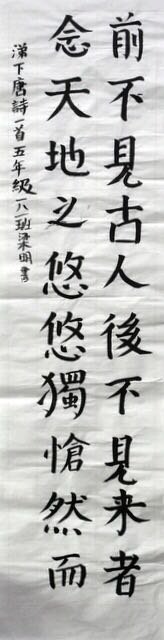 前不見古人後不見来者
念天地之悠悠獨愴然而
涕下唐詩一首五年級一八一班梁明書